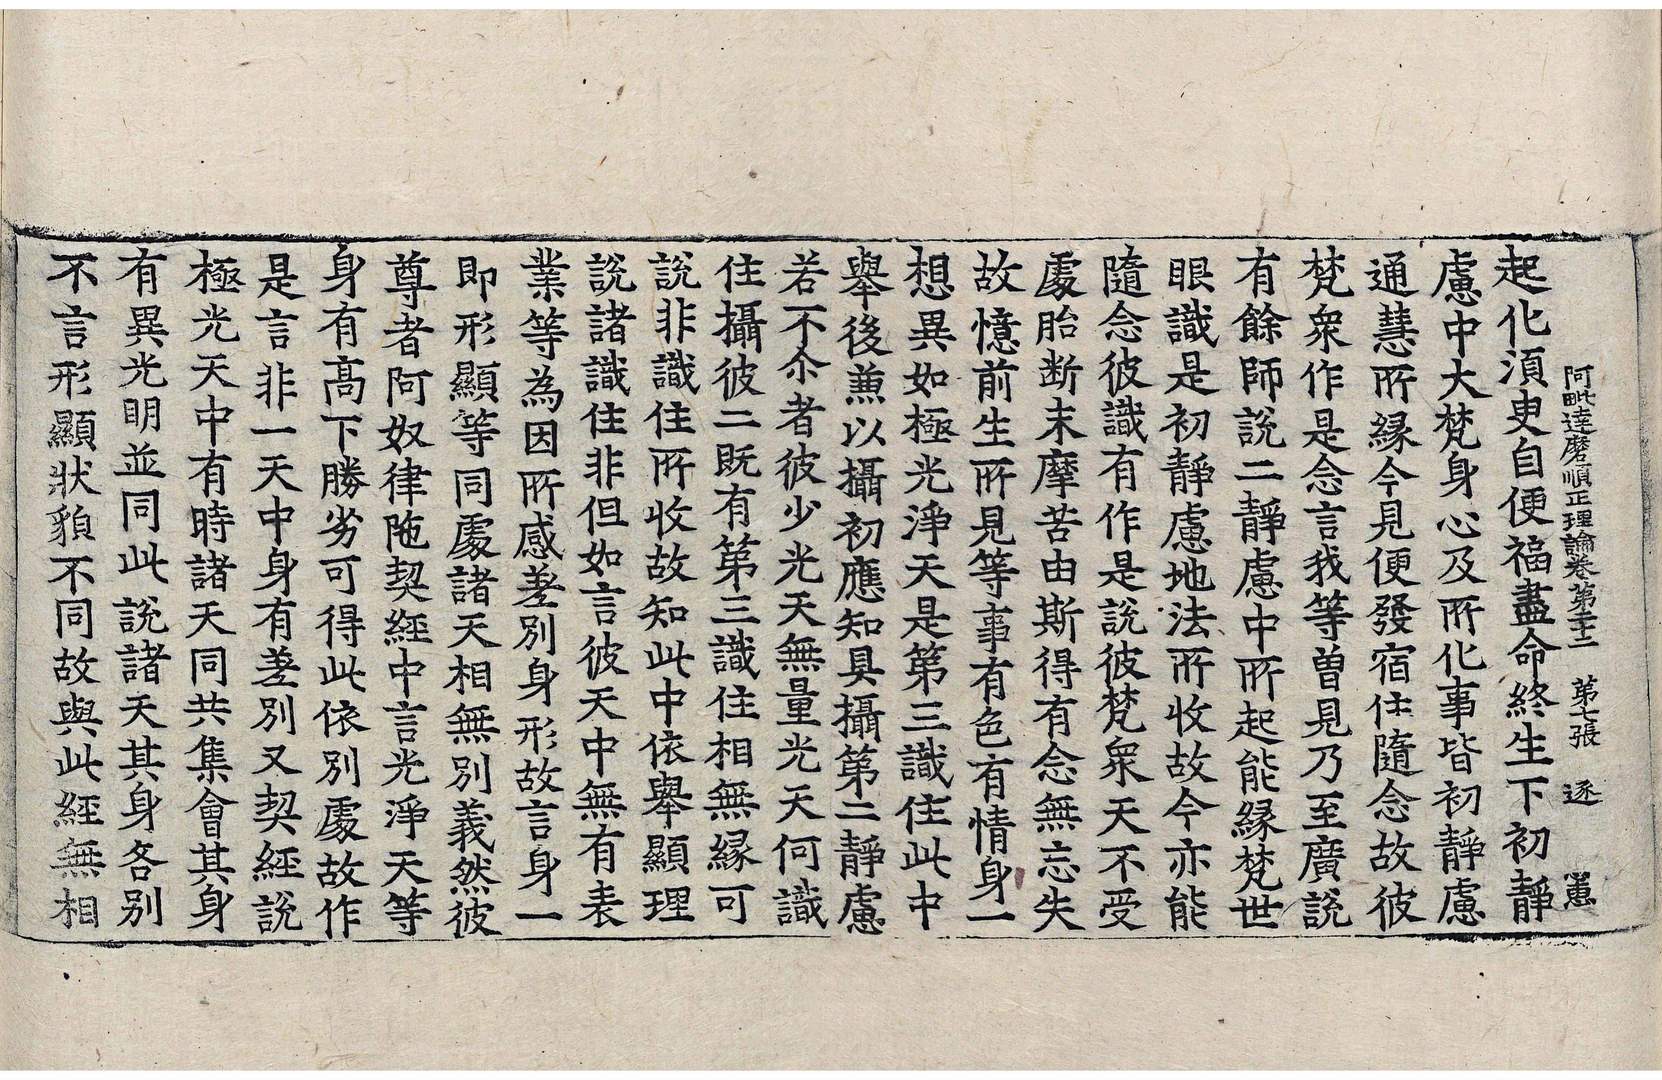 阿毗達磨順正理論卷第二十二 第七張 逐 𢠢
起化湏臾自便福盡命終生下初靜
慮中大梵身心及所化事皆初靜慮
通慧所縁今見便發宿住隨念故彼
梵衆作是念言我等曽見乃至廣説
有餘師説二靜慮中所起能縁梵世
眼識是初靜慮地法所收故今亦能
隨念彼識有作是説彼梵衆天不受
處胎断末摩苦由斯得有念無忘失
故憶前生所見等事有色有情身一
想異如極光淨天是第三識住此中
舉後兼以攝初應知具攝第二靜慮
若不尒者彼少光天無量光天何識
住攝彼二既有第三識住相無縁可
説非識住所收故知此中依舉顯理
説諸識住非但如言彼天中無有表
業等為因所感差別身形故言身一
即形顯等同處諸天相無別義然彼
尊者阿奴律陁契經中言光淨天等
身有高下勝劣可得此依別處故作
是言非一天中身有差別又契經説
極光天中有時諸天同共集會其身
有異光明並同此説諸天其身各別
不言形顯狀貌不同故與此經無相